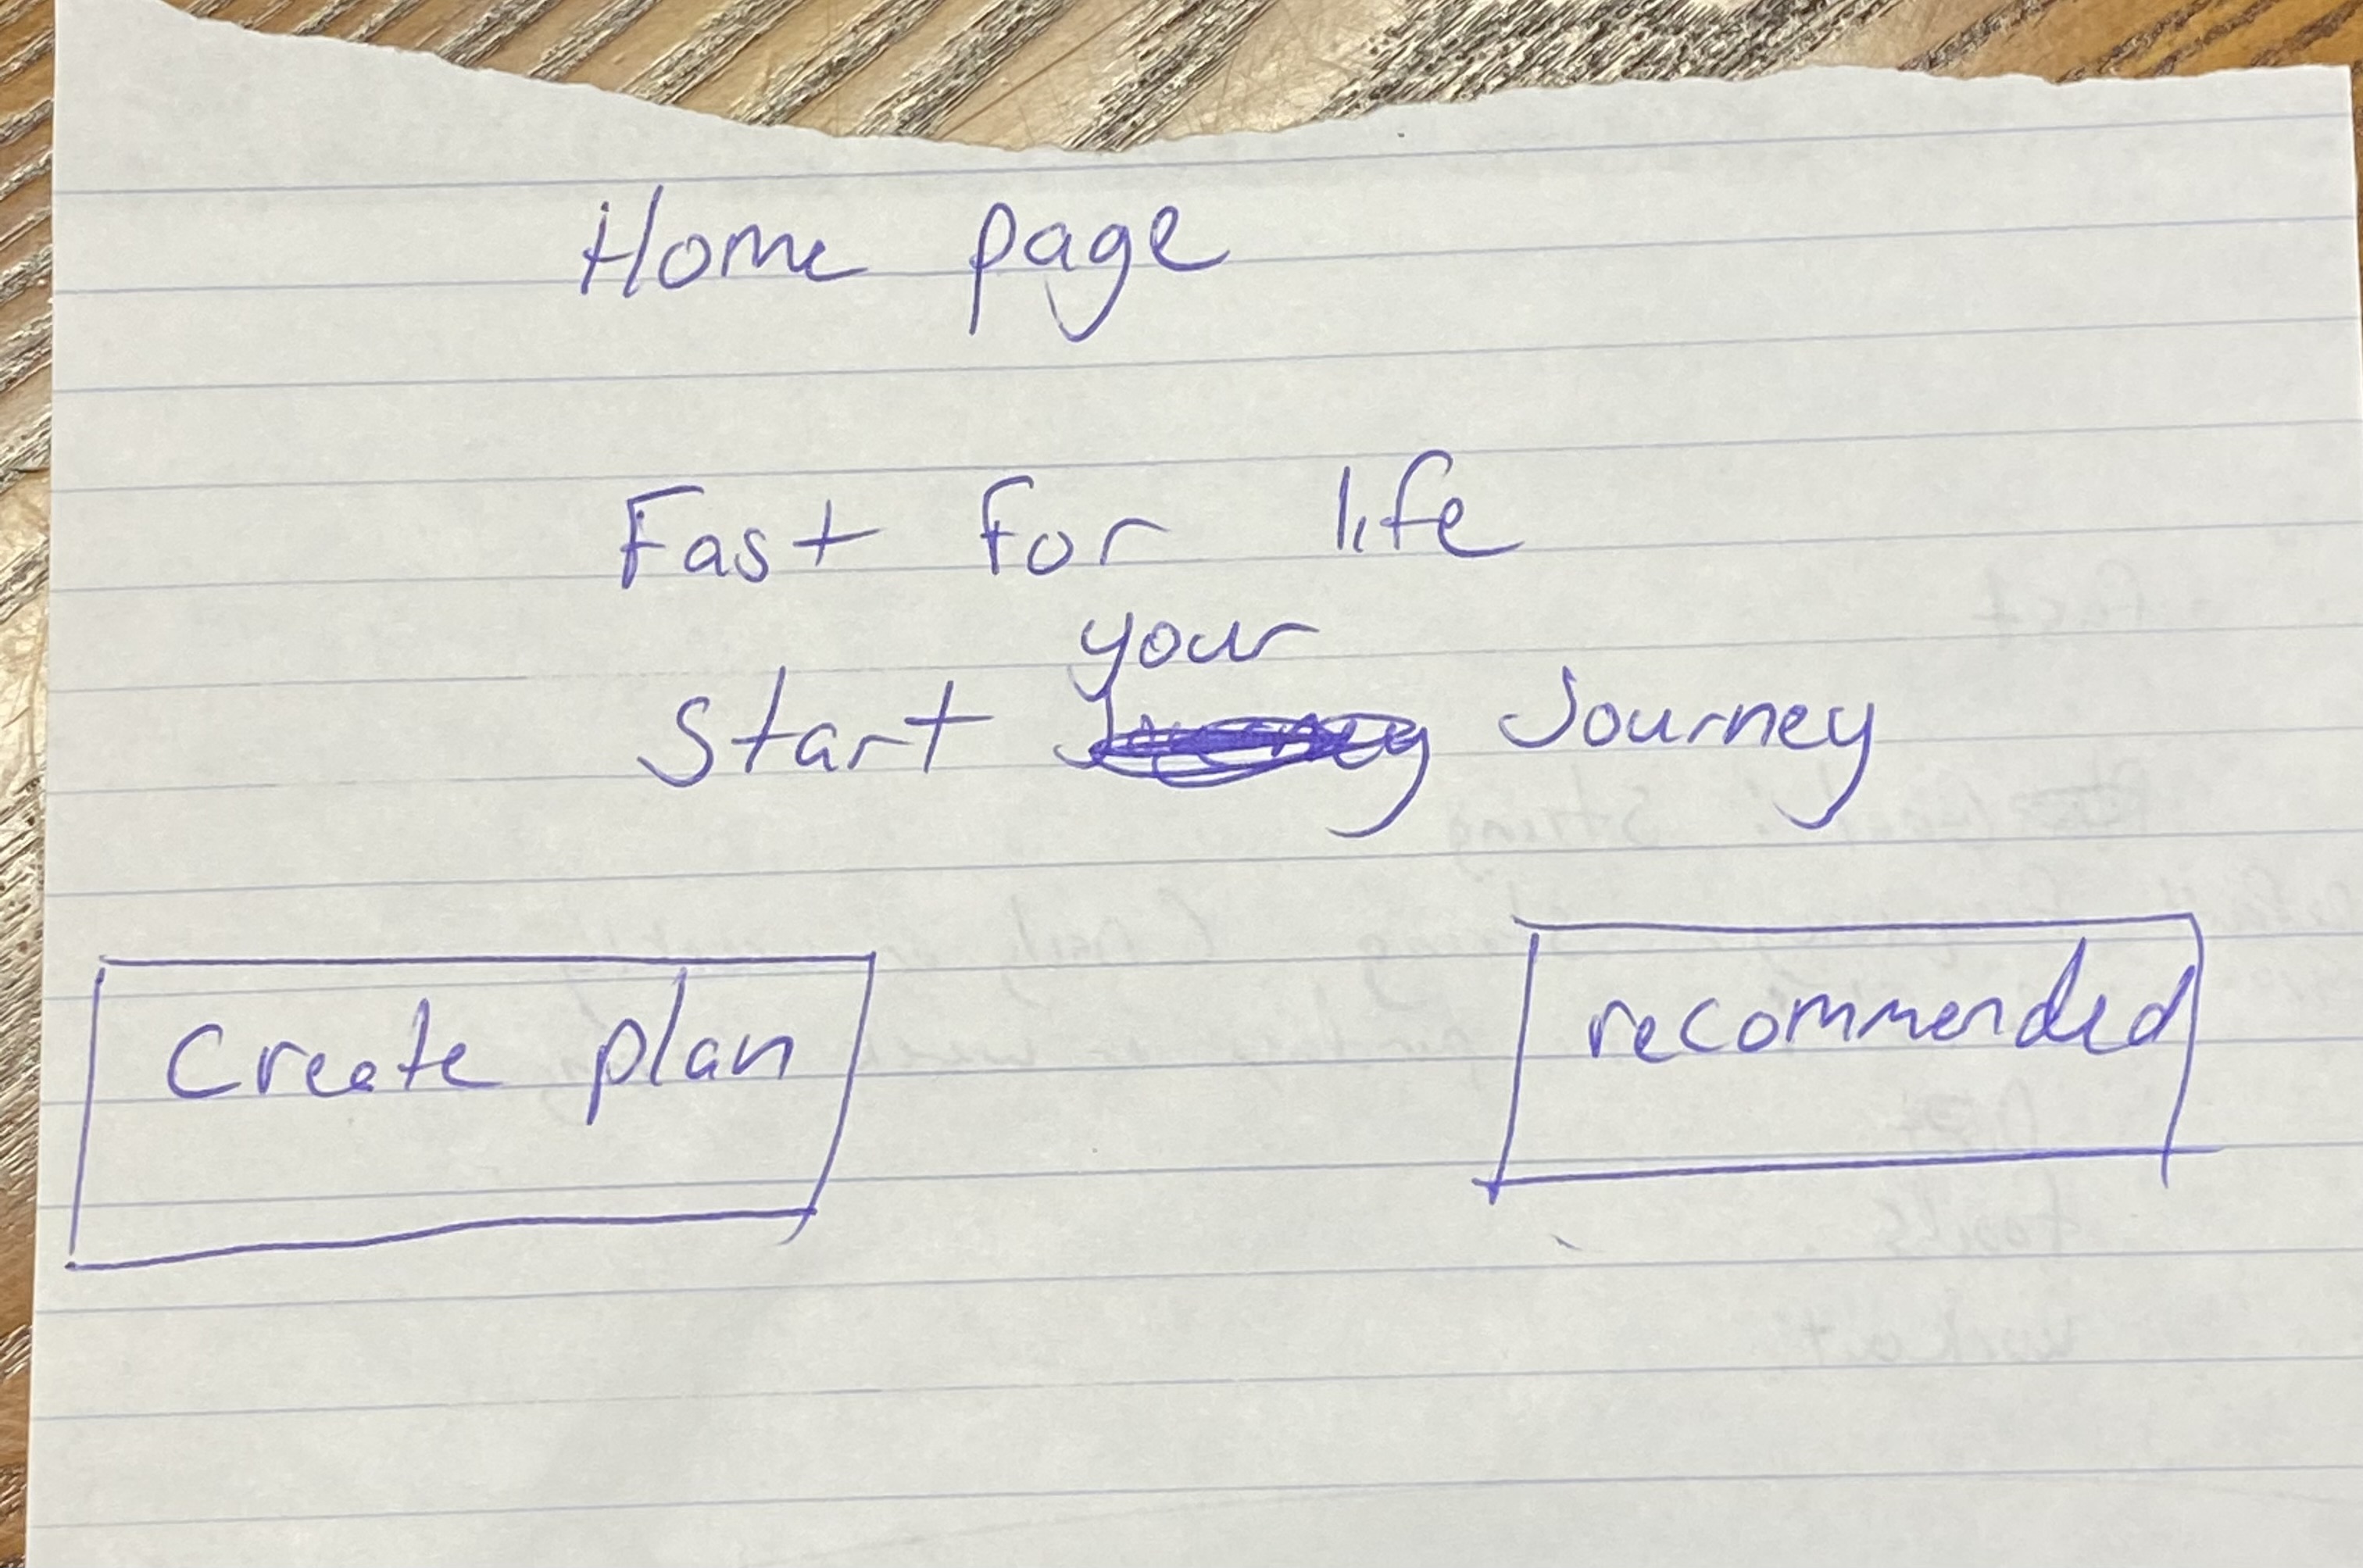 Home page
Fast for life
your
Start Journey
Create plan
recommended